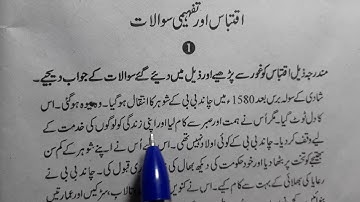 اقتباس اور تفہیمی سوالات
1
مندرجہ ذیل اقتباس کو غور سے پڑھیے اور ذیل میں دیئے گئے سوالات کے جواب دیجیے۔
شادی کے سولہ برس بعد 1580ء میں چاند بی بی کے شوہر کا انتقال ہو گیا۔ وہ بیوہ ہو گئی۔ اس
کا دل ٹوٹ گیا۔ مگر اُس نے ہمت اور صبر سے کام لیا اور اپنی زندگی کو لوگوں کی خدمت کے
لیے وقف کر دیا۔ چاند بی بی کے کوئی اولاد نہیں تھی۔ اس لیے اُس نے اپنے شوہر کے کم سن
بھتیجے کو تخت پر بٹھا دیا اور خود حکومت کی دیکھ بھال کی قبول کی۔ چاند بی بی نے
رعایا کی بھلائی کے بہت سے کام کیے۔ اس نے کنویں تالاب، سڑکیں اور عمارتیں